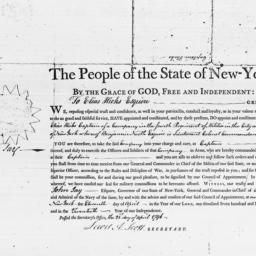 The People of the State of New-Yo
By the Grace of GOD, Free and Independent:
To Elias Hicks Esquire GRE
WE, reposing especial trust and confidence, as well in your patriotism, conduct and loyalty, as in your valor
to do us good and faithful Service, HAVE appointed and constituted, and by these presents, DO appoint and constitute
Elias Hicks Captain of a Company in the fourth Regiment of Militia in the City
of New York whereof Benjamin North Esquire is Lieutenant Colonel Commandant
YOU are therefore, to take the said Company into your charge and care, as Captain
and duly to exercise the Officers and Soldiers of that Company in Arms, who are hereby commanded
as their Captain and you are also to observe and follow such orders and
from time to time receive from our General and Commander in Chief of the Militia of our said State, or
Superior Officer, according to the Rules and Discipline of War, in pursuance of the trust reposed in you; and for
shall be your commission, for and during our good pleasure, to be signified by our Council of Appointment.
whereof, we have caused our seal for military commissions to be hereunto affixed. WITNESS, our trusty and
John Jay Esquire, Governor of our State of New-York, General and Commander in Chief of all
Admiral of the Navy of the same, by and with the advice and consent of our said Council of Appointment, at our
New York the Eleventh day of April in the Year of our Lord, one thousand seven hundred and
in the Twentieth Year of our Independence.
Passed the Secretary's Office, the day of April 1796
Lewis A. Scott SECRETARY.
Jay